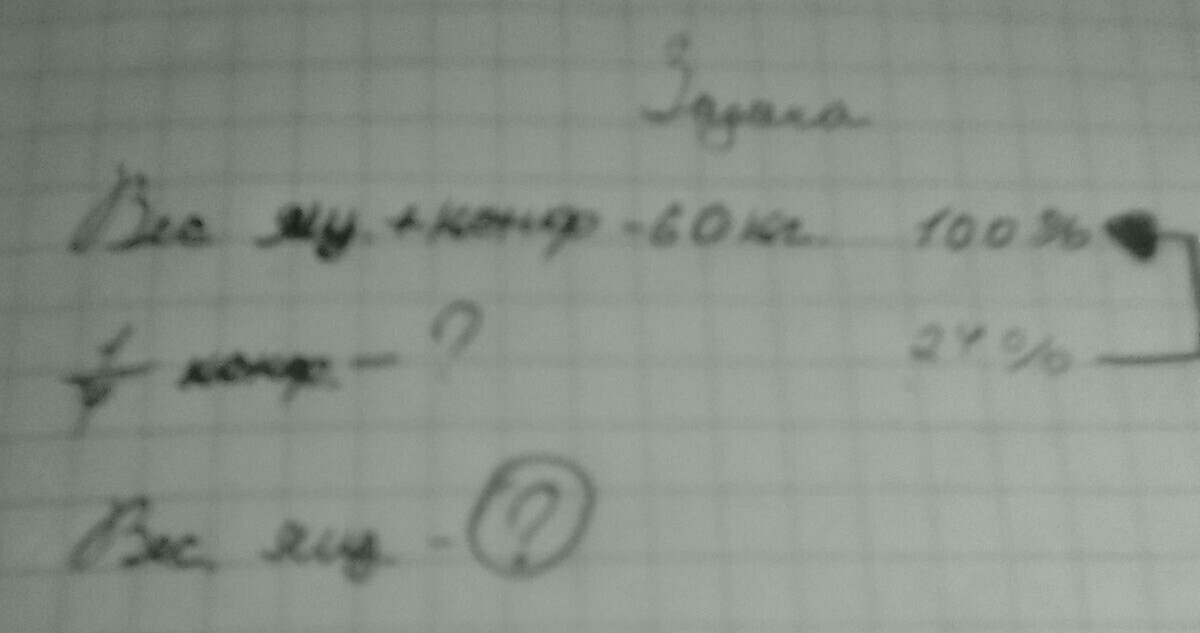 Задача
Вес ящ. + конф - 60 кг. 100 %
1/4 конф. - ? 24 %
Вес ящ. - ?